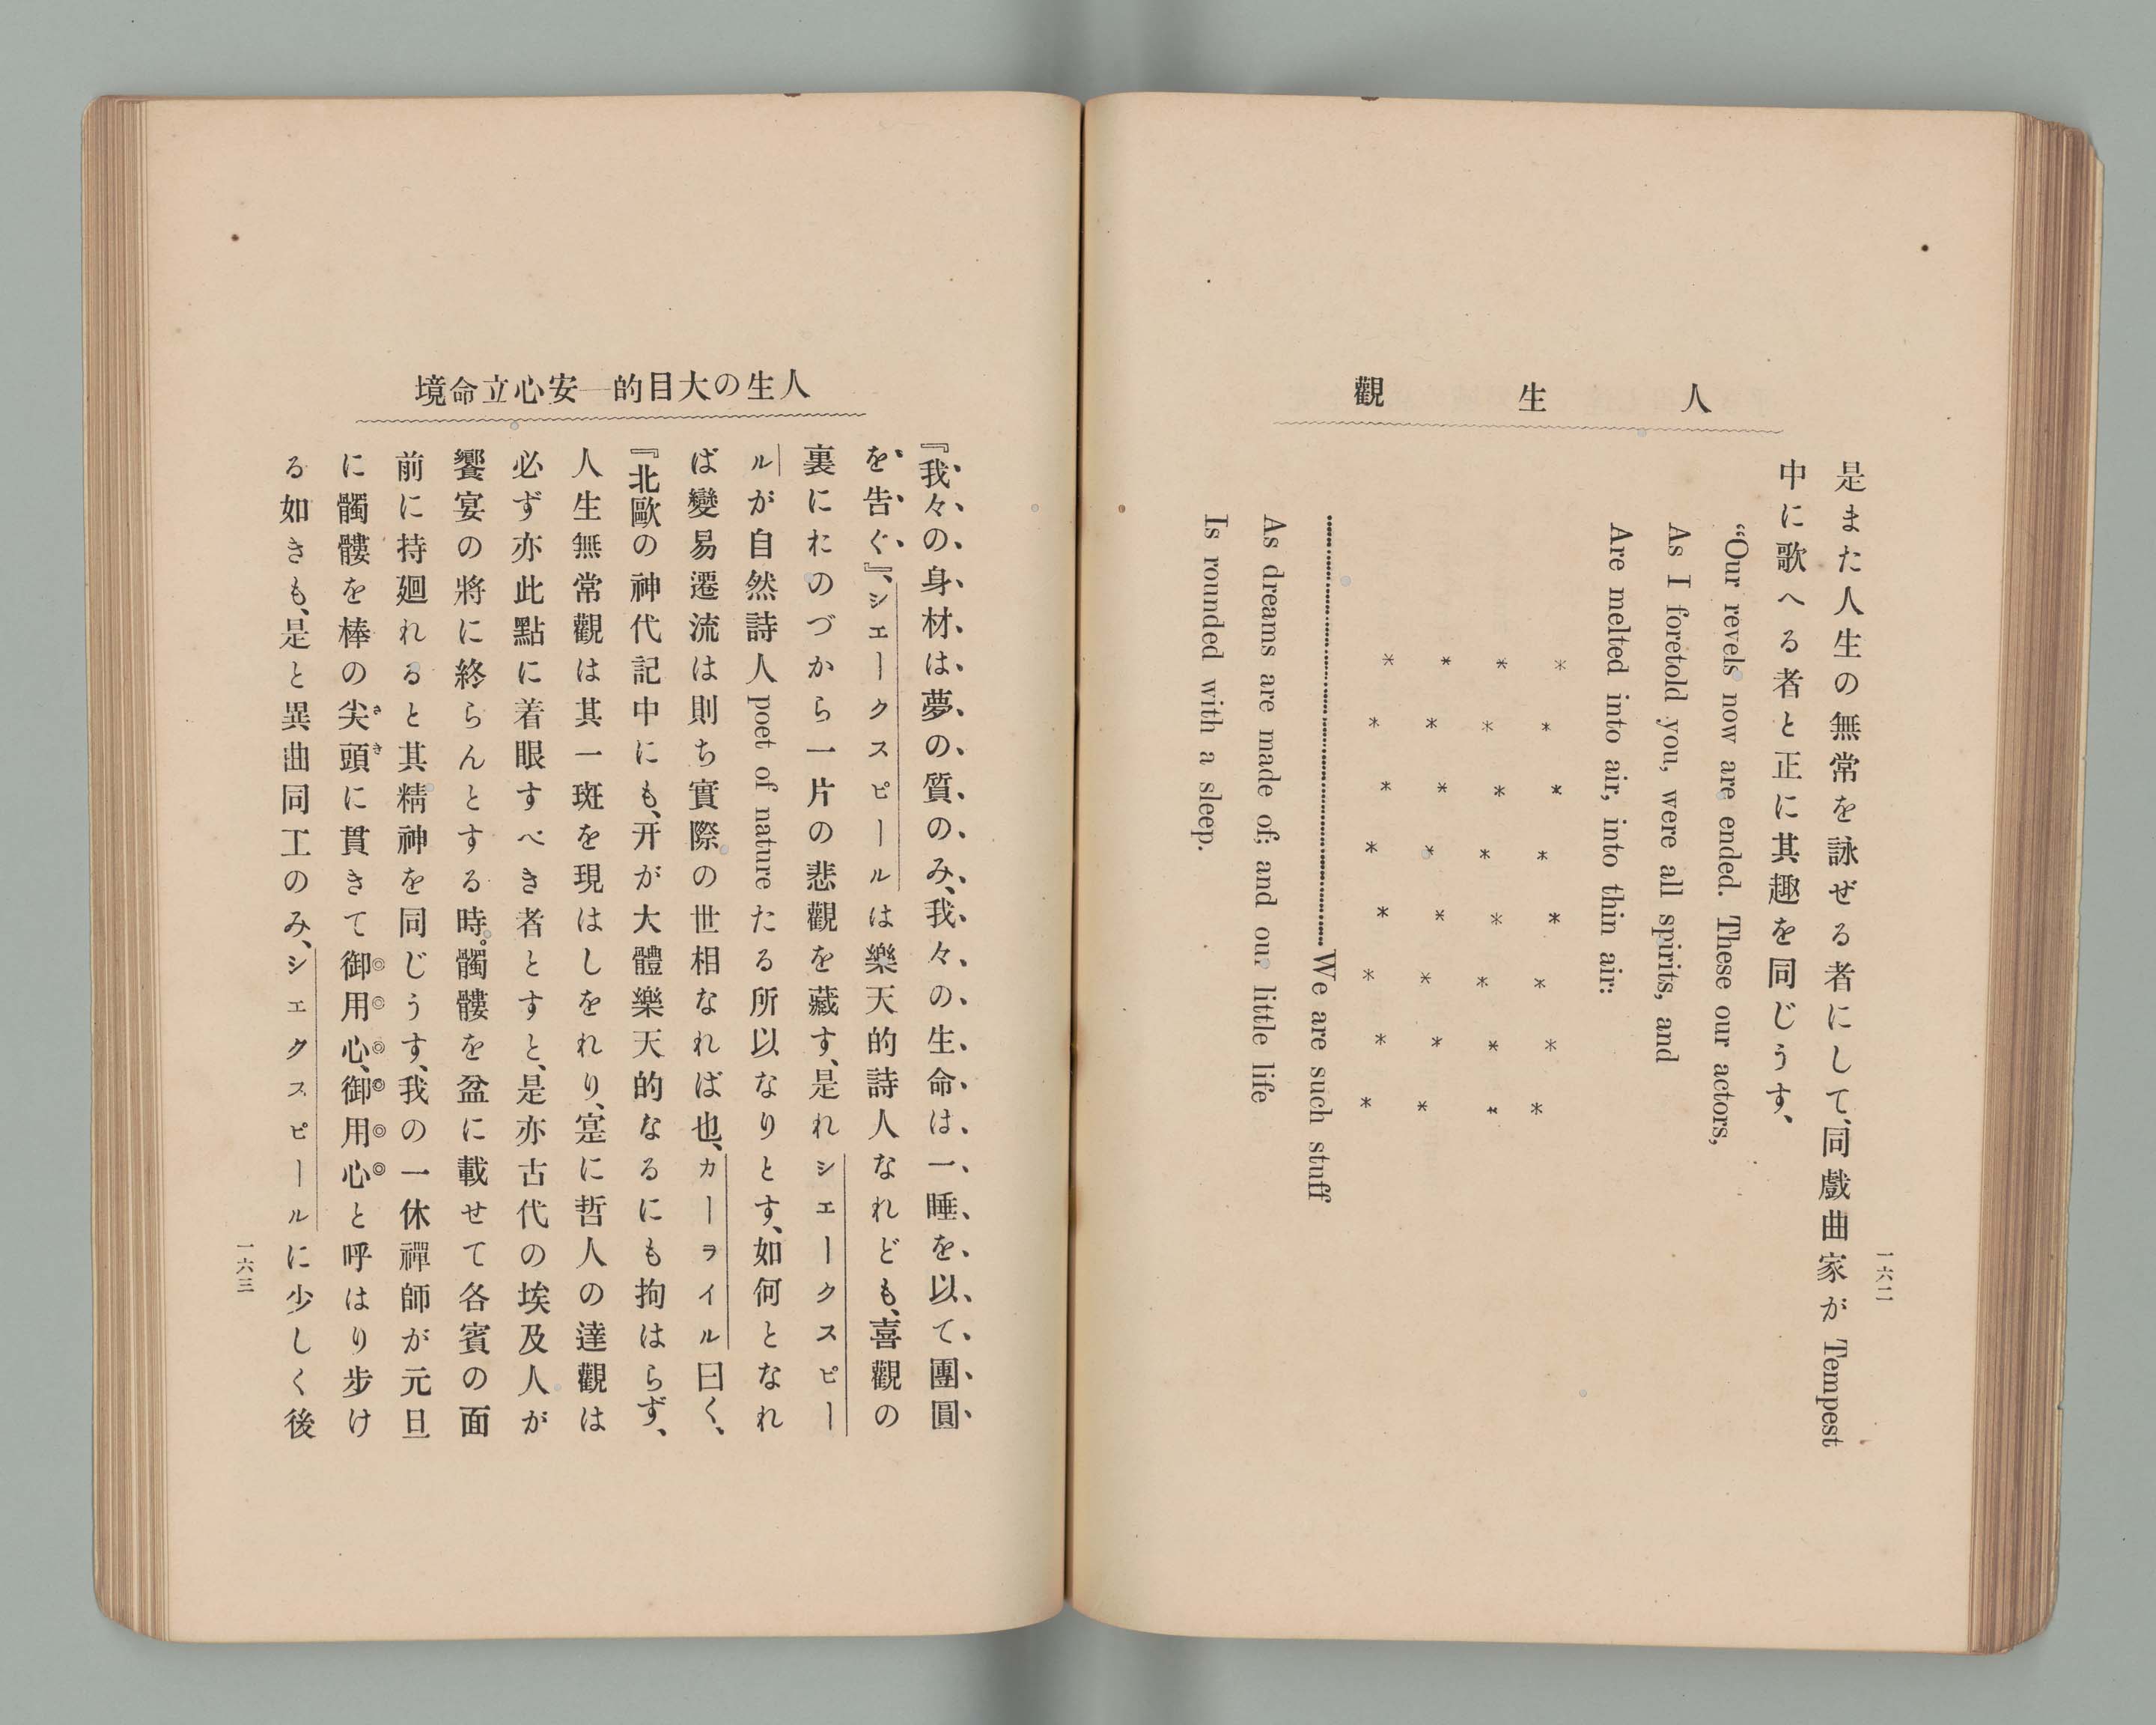 人生觀
一六二
是また人生の無常を詠ぜる者にして、同戲曲家が Tempest
中に歌へる者と正に其趣を同じうす、
“Our revels now are ended. These our actors,
As I foretold you, were all spirits, and
Are melted into air, into thin air:
* * * * * * * *
* * * * * * * *
* * * * * * * *
* * * * * * * *
……………………………………We are such stuff
As dreams are made of; and our little life
Is rounded with a sleep.
人生の大目的―安心立命境
『我々の身材は夢の質のみ、我々の生命は一睡を以て團圓
を告ぐ』、シェークスピールは樂天的詩人なれども、喜觀の
裏にれのづから一片の悲觀を藏す、是れシェークスピー
ルが自然詩人 poet of nature たる所以なりとす、如何となれ
ば變易遷流は則ち實際の世相なれば也、カーライル曰く、
『北歐の神代記中にも、开が大體樂天的なるにも拘はらず、
人生無常觀は其一斑を現はしをれり、寔に哲人の達觀は
必ず亦此點に着眼すべき者とすと、是亦古代の埃及人が
饗宴の將に終らんとする時。髑髏を盆に載せて各賓の面
前に持廻れると其精神を同じうす、我の一休禪師が元旦
に髑髏を棒の尖頭に貫きて御用心、御用心と呼はり步け
る如きも、是と異曲同工のみ、シェクスピールに少しく後
一六三